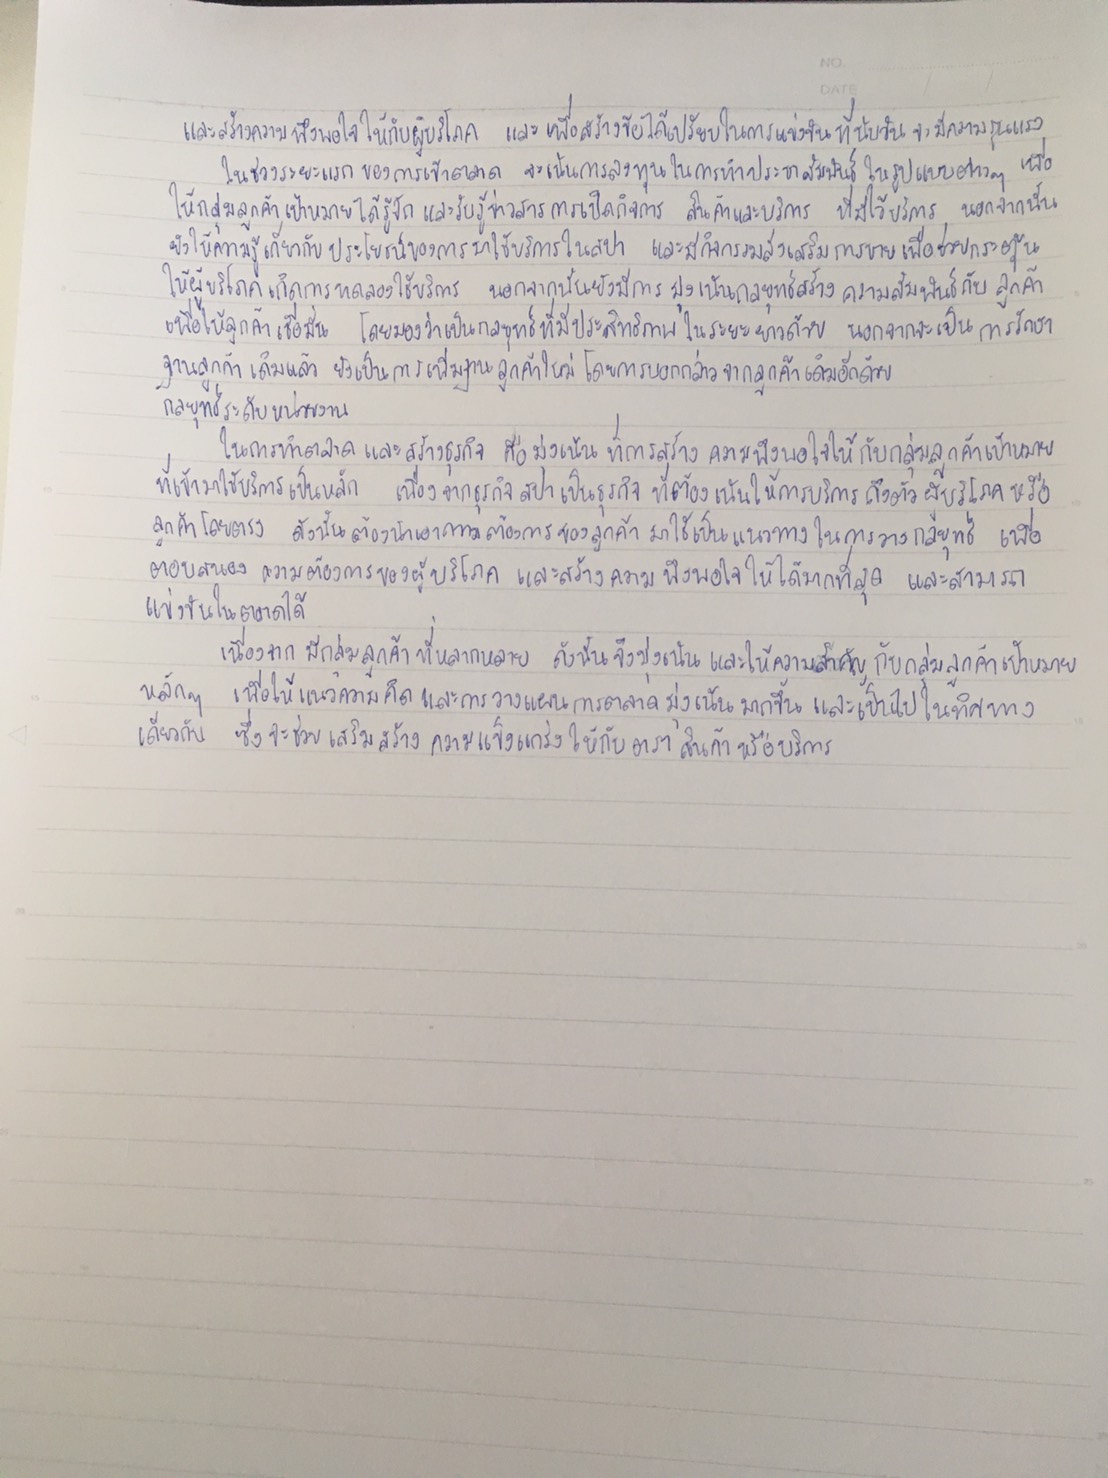 และสร้างความพึงพอใจให้กับผู้บริโภค และเพื่อสร้างข้อได้เปรียบในการแข่งขันที่นับวันจะมีความรุนแรง
ในช่วงระยะแรกของการเข้าตลาด จะเน้นการลงทุนในการทำประชาสัมพันธ์ในรูปแบบต่างๆ เพื่อ
ให้กลุ่มลูกค้าเป้าหมายได้รู้จักและรับรู้ข่าวสารการเปิดกิจการ สินค้าและบริการ ที่มีไว้บริการ นอกจากนั้น
ยังให้ความรู้เกี่ยวกับประโยชน์ของการมาใช้บริการในสปา และมีกิจกรรมส่งเสริมการขายเพื่อช่วยกระตุ้น
ให้ผู้บริโภคเกิดการทดลองใช้บริการ นอกจากนั้นยังมีการมุ่งเน้นกลยุทธ์สร้างความสัมพันธ์กับลูกค้า
เพื่อให้ลูกค้าเชื่อมั่น โดยมองว่าเป็นกลยุทธ์ที่มีประสิทธิภาพในระยะยาวด้วย นอกจากจะเป็นการรักษา
ฐานลูกค้าเดิมแล้ว ยังเป็นการเพิ่มฐานลูกค้าใหม่โดยการบอกกล่าวจากลูกค้าเดิมอีกด้วย
กลยุทธ์ระดับหน่วยงาน
ในการทำตลาดและสร้างธุรกิจ คือมุ่งเน้นที่การสร้างความพึงพอใจให้กับกลุ่มลูกค้าเป้าหมาย
ที่เข้ามาใช้บริการเป็นหลัก เนื่องจากธุรกิจสปาเป็นธุรกิจที่ต้องเน้นให้การบริการถึงตัวผู้บริโภคหรือ
ลูกค้าโดยตรง ดังนั้นต้องนำเอาความต้องการของลูกค้ามาใช้เป็นแนวทางในการวางกลยุทธ์ เพื่อ
ตอบสนองความต้องการของผู้บริโภค และสร้างความพึงพอใจให้ได้มากที่สุด และสามารถ
แข่งขันในตลาดได้
เนื่องจากมีกลุ่มลูกค้าที่หลากหลาย ดังนั้นจึงมุ่งเน้นและให้ความสำคัญกับกลุ่มลูกค้าเป้าหมาย
หลักๆ เพื่อให้แนวความคิดและการวางแผนการตลาดมุ่งเน้นมากขึ้น และเป็นไปในทิศทาง
เดียวกับ ซึ่งจะช่วยเสริมสร้างความแข็งแกร่งให้กับตราสินค้าหรือบริการ